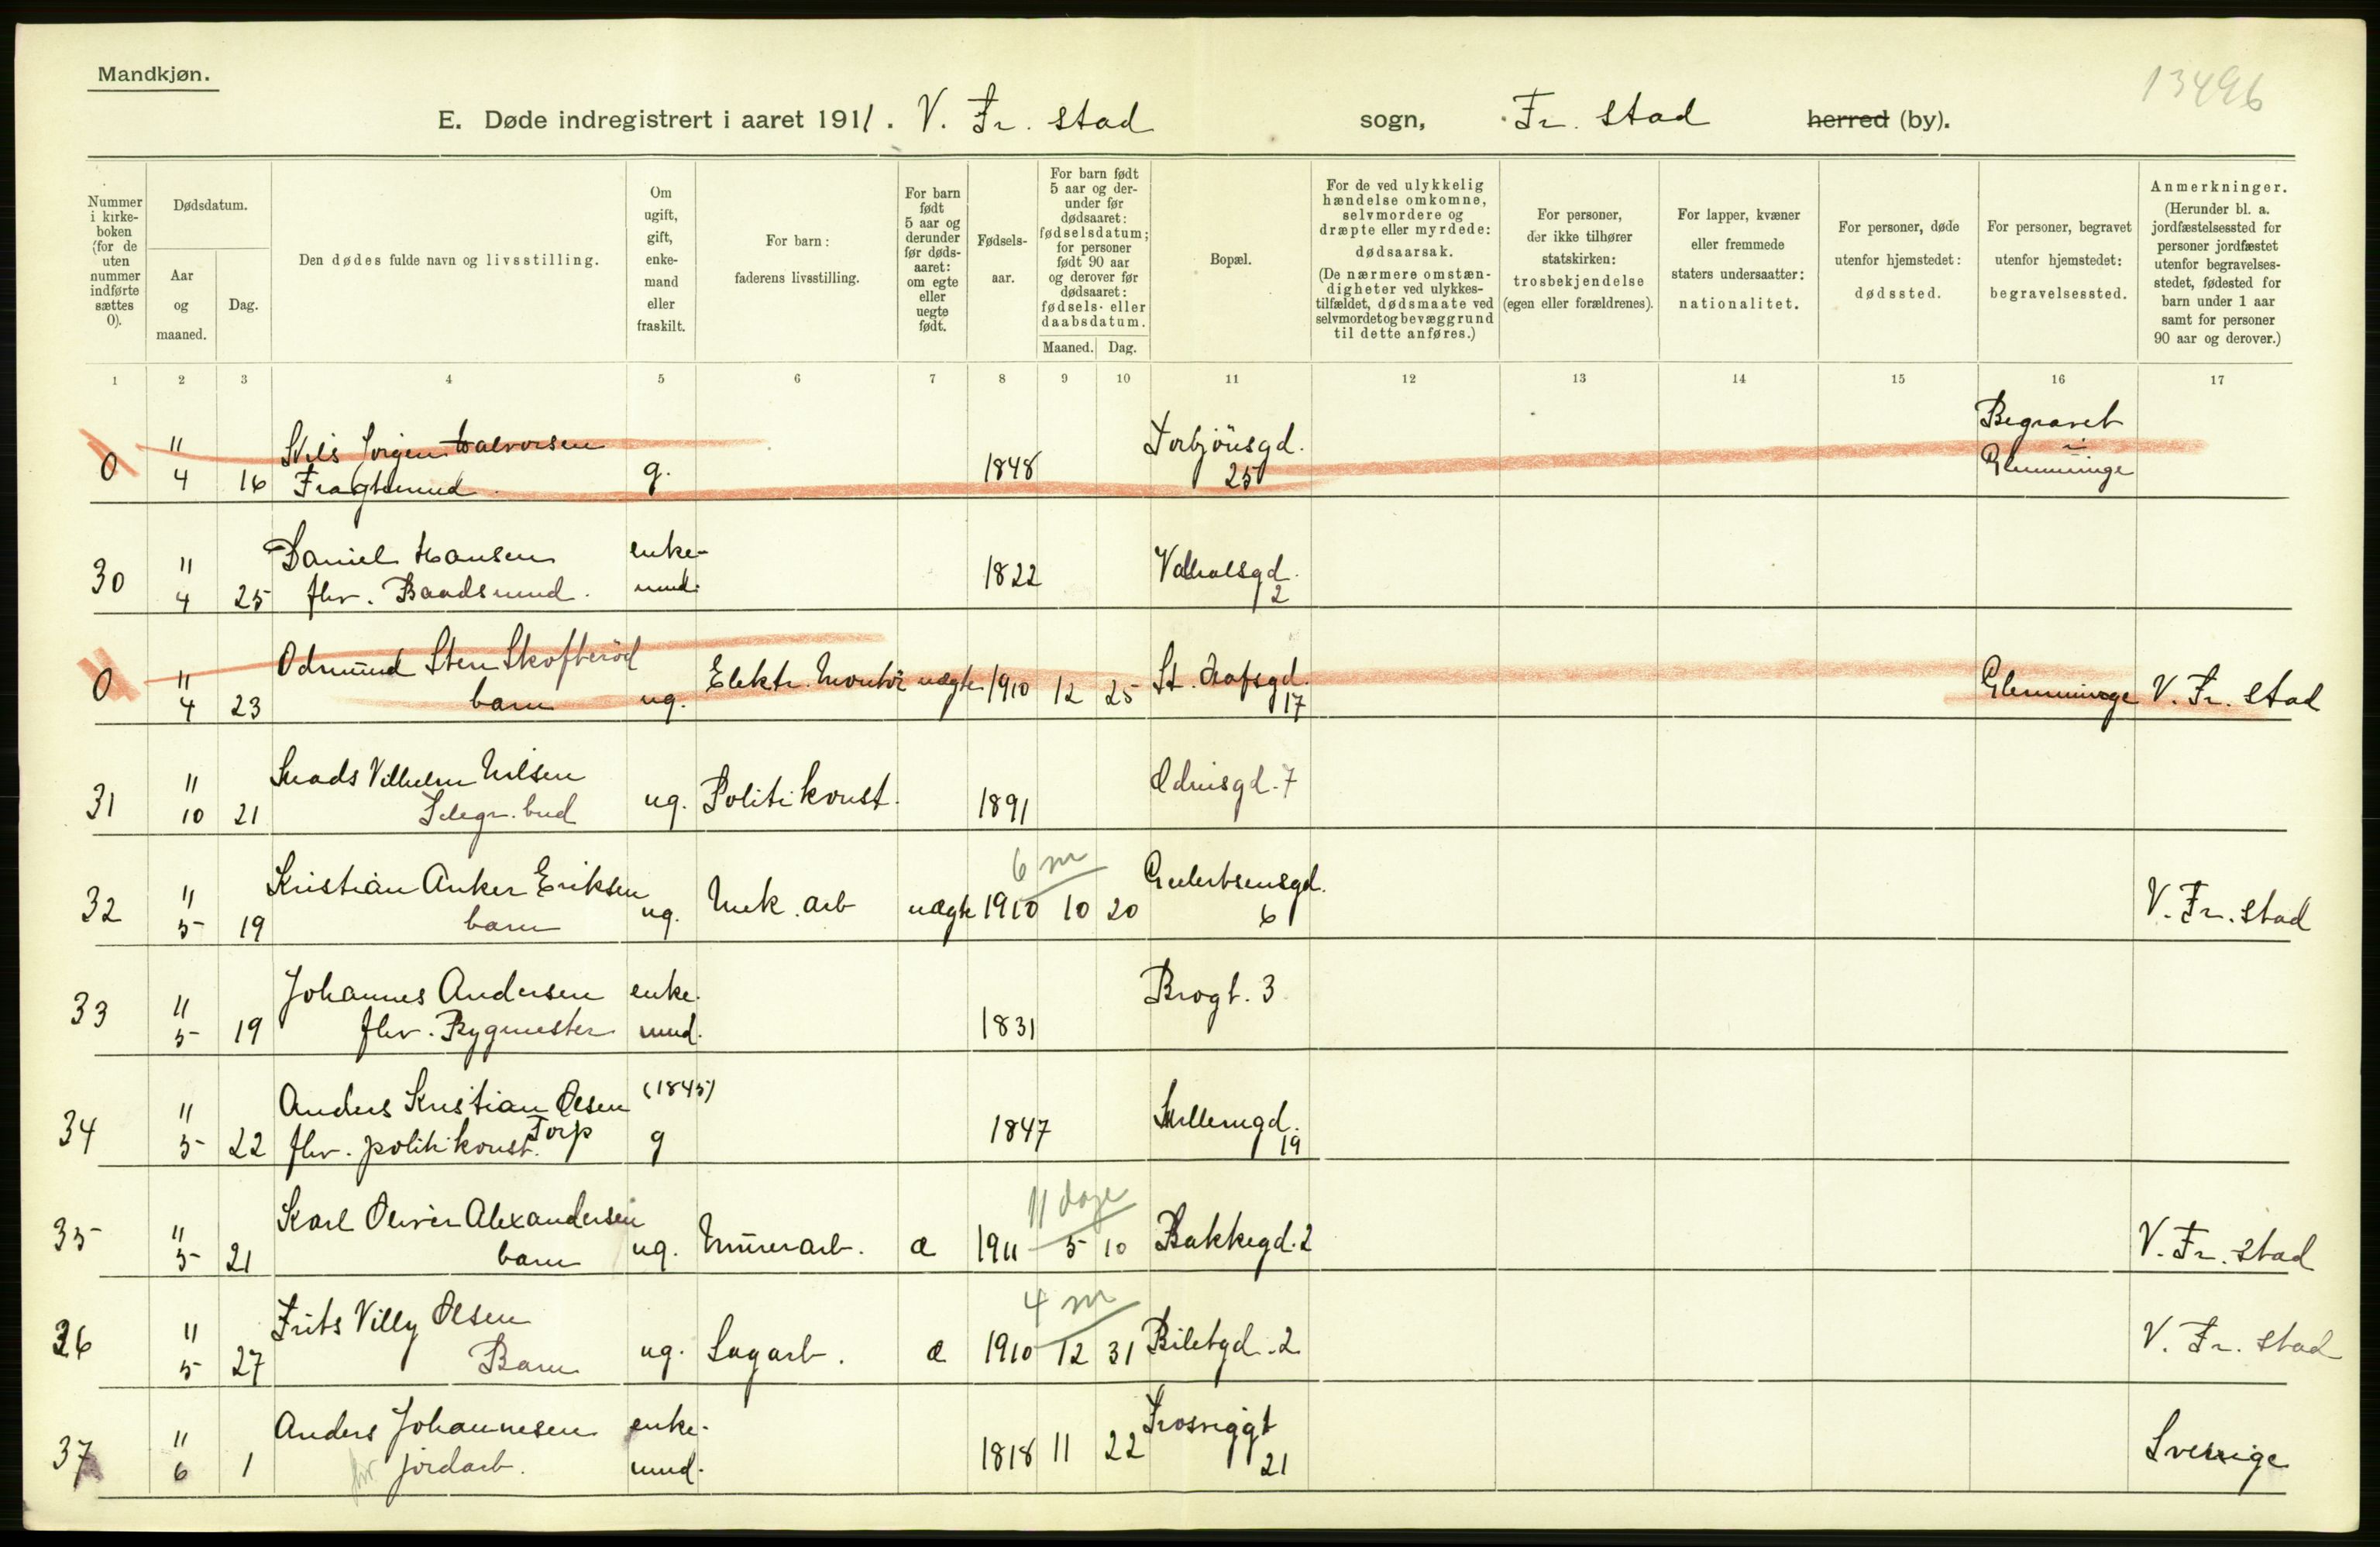 Mandkjøn.
13496
E. Døde indregistrert i aaret 1911. V. Fr. stad sogn, Fr. stad herred (by).
Nummer i kirke-boken (for de uten nummer indførte sættes 0).
Dødsdatum.
Aar og maaned.
Dag.
Den dødes fulde navn og livsstilling.
Om ugift, gift, enke-mand eller fraskilt.
For barn: faderens livsstilling.
For barn født 5 aar og derunder før døds-aaret: om egte eller uegte født.
Fødsels-aar.
For barn født 5 aar og der-under før dødsaaret: fødselsdatum; for personer født 90 aar og derover før dødsaaret: fødsels- eller daabsdatum.
Maaned. Dag.
Bopæl.
For de ved ulykkelig hændelse omkomne, selvmordere og dræpte eller myrdede: dødsaarsak. (De nærmere omstæn-digheter ved ulykkes-tilfældet, dødsmaate ved selvmordet og bevæggrund til dette anføres.)
For personer, der ikke tilhører statskirken: trosbekjendelse (egen eller forældrenes).
For lapper, kvæner eller fremmede staters undersaatter: nationalitet.
For personer, døde utenfor hjemstedet: dødssted.
For personer, begravet utenfor hjemstedet: begravelsessted.
Anmerkninger. (Herunder bl. a. jordfæstelsessted for personer jordfæstet utenfor begravelses-stedet, fødested for barn under 1 aar samt for personer 90 aar og derover.)
1 2 3 4 5 6 7 8 9 10 11 12 13 14 15 16 17
0 11 Nils Jørgen Halvorsen Torbjönsgd. Begravet i
4 16 Fragtemnd. g. 1848 25 Glemminge
30 11 Daniel Hansen enke-
4 25 fhv. Baadsmnd. mnd. 1822 Valhalsgd. 2
0 11 Odmund Sten Skofteröd
4 23 barn ug. Elektr. Montör uægte 1910 12 25 St. Olafsgd. 17 Glemminge V. Fr. stad
31 11 Mads Vilhelm Nilsen
10 21 Telegr. bud ug. Politikonst. 1891 Odinsgd. 7
6 m
32 11 Kristian Anker Eriksen
5 19 barn ug. Mek. arb uægte 1910 10 20 Gulbertsensgd. 6 V. Fr. stad
33 11 Johannes Andersen enke.
5 19 fhv. Rygmester mnd. 1831 Brogt. 3
34 11 Anders Kristian Olsen (1845)
Torp
5 22 fhv. politikonst. g 1847 Møllerngd. 19
11 dage
35 11 Karl Oliver Alexandersen
5 21 barn ug. Murerarb. æ 1911 5 10 Bakkegd. 2 V. Fr. stad
4 m
36 11 Frits Villy Olsen
5 27 Barn ug. Sagarb. æ 1910 12 31 Biletgd. 2 V. Fr. stad
37 11 Anders Johannesen enke-
6 1 fhv jordarb. mnd. 1818 11 22 Trosviggt 21 Sverige